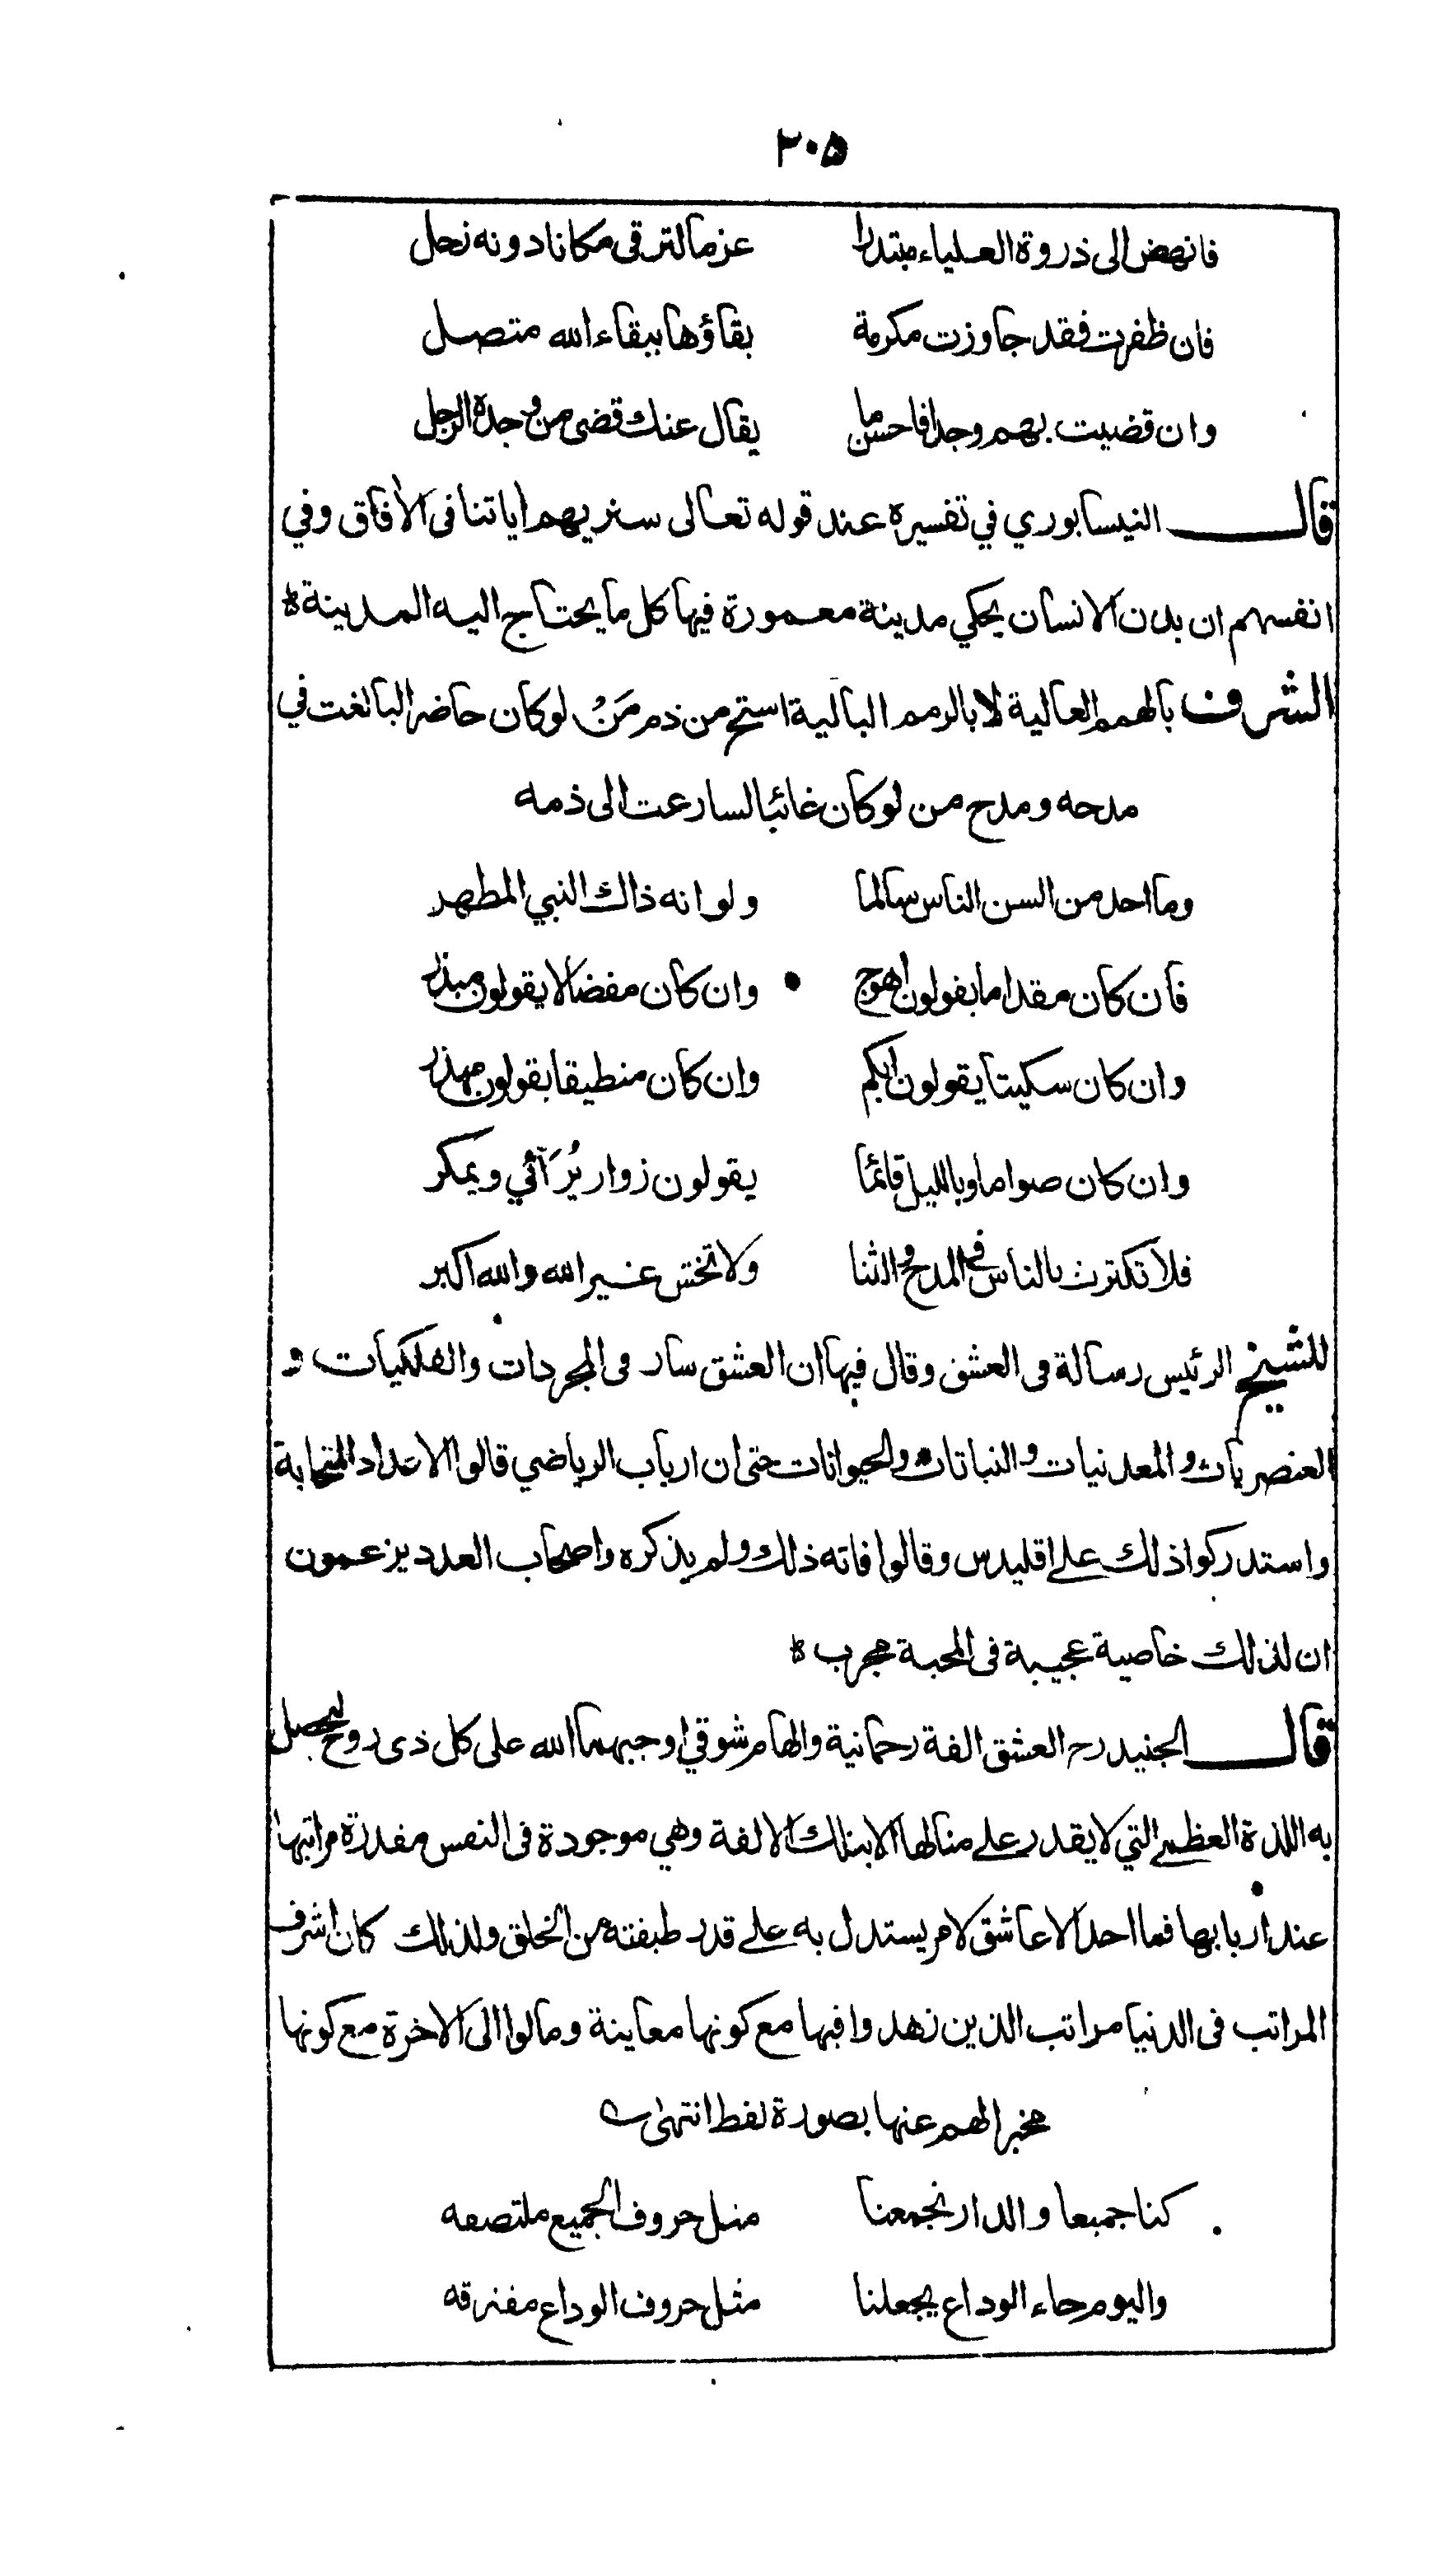 ٢٠٥
فانهض الى ذروة العلياء مبتدرا عزما لترقى مكانا دونه زحل
فان ظفرت فقد جاوزت مكرمة بقاؤها ببقاء الله متصل
وان قضيت بهم وجدا فاحسن ما يقال عنك قضى من وجده الرجل
قال النيسابوري في تفسيره عند قوله تعالى سنريهم اياتنا فى الأفاق وفي
انفسهم ان بدن الانسان يحكي مدينة معمورة فيها كل ما يحتاج اليه المدينة
الشرف بالهمم العالية لا بالرمم البالية استح من ذم مَنْ لو كان حاضرا لبالغت في
مدحه ومدح من لو كان غائبا لسارعت الى ذمه
وما احد من السن الناس سالما ولو انه ذاك النبي المطهر
فان كان مقداما يقولون اهوج وان كان مفضالا يقولون مبذر
وان كان سكيتا يقولون ابكم وان كان منطيقا يقولون مهذر
وان كان صواما وبالليل قائما يقولون زوار يُرَآئي ويمكر
فلا تكترث بالناس في المدح والثنا ولا تخش غير الله والله اكبر
للشيخ الرئيس رسالة فى العشق وقال فيها ان العشق سار فى المجردات والفلكيات و
العنصريات والمعدنيات والنباتات والحيوانات حتى ان ارباب الرياضي قالوا الاعداد المتحابة
واستدركوا ذلك على اقليدس وقالوا فاته ذلك ولم يذكره واصحاب العدد يزعمون
ان لذلك خاصية عجيبة فى المحبة مجرب
قال الجنيد رح العشق الفة رحمانية والهام شوقي اوجبهما الله على كل ذى روح ليحصل
به اللذة العظمے التي لا يقدر على منالها الا بتلك الالفة وهي موجودة فى النفس مقدرة مراتبها
عند اربابها فما احد الا عاشق لامر يستدل به على قدر طبقته من الخلق ولذلك كان اشرف
المراتب فى الدنيا مراتب الذين زهدوا فيها مع كونها معاينة ومالوا الى الاخرة مع كونها
مخبرا لهم عنها بصورة لفط انتهى
كنا جميعا والدار تجمعنا مثل حروف الجميع ملتصقه
واليوم جاء الوداع يجعلنا مثل حروف الوداع مفترقه